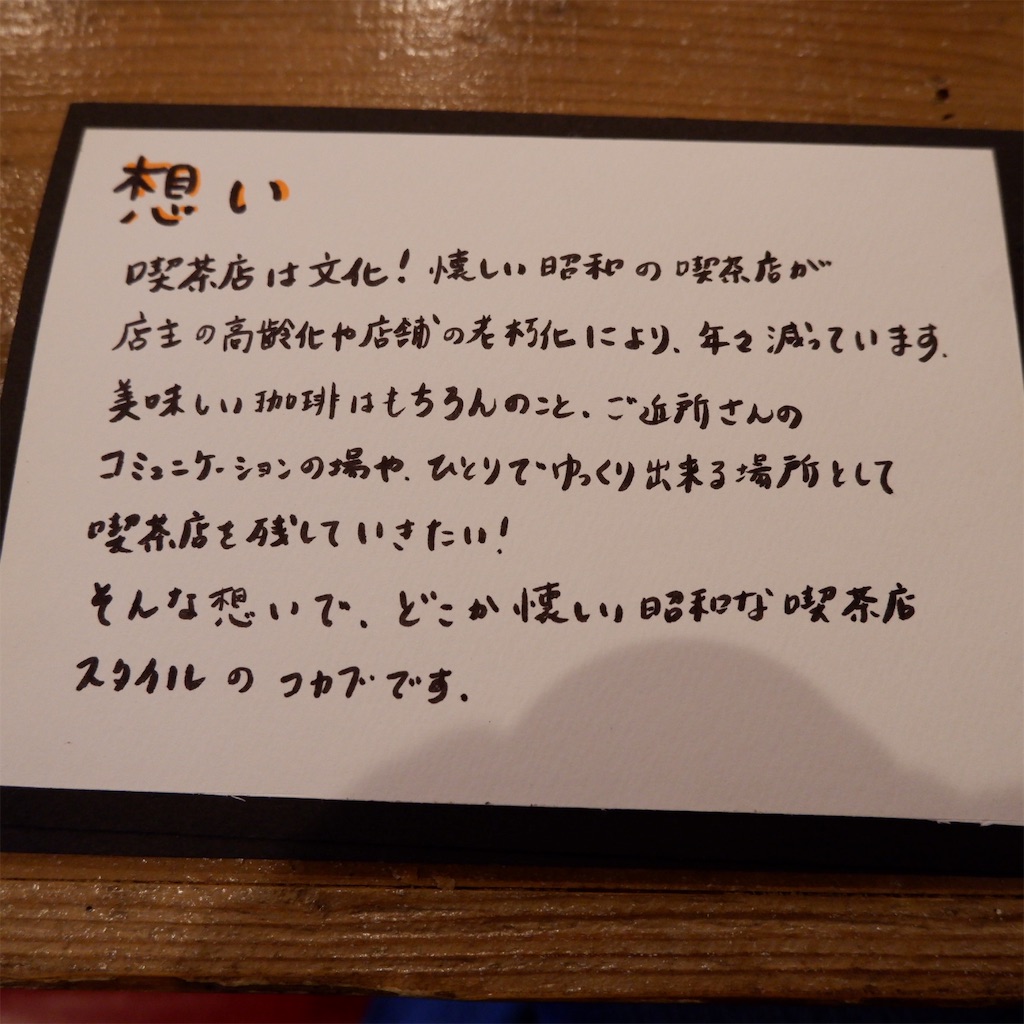 想い
喫茶店は文化！懐しい昭和の喫茶店が
店主の高齢化や店舗の老朽化により、年々減っています。
美味しい珈琲はもちろんのこと、ご近所さんの
コミュニケーションの場や、ひとりでゆっくり出来る場所として
喫茶店を残していきたい！
そんな想いで、どこか懐しい昭和な喫茶店
スタイルのコカブです。